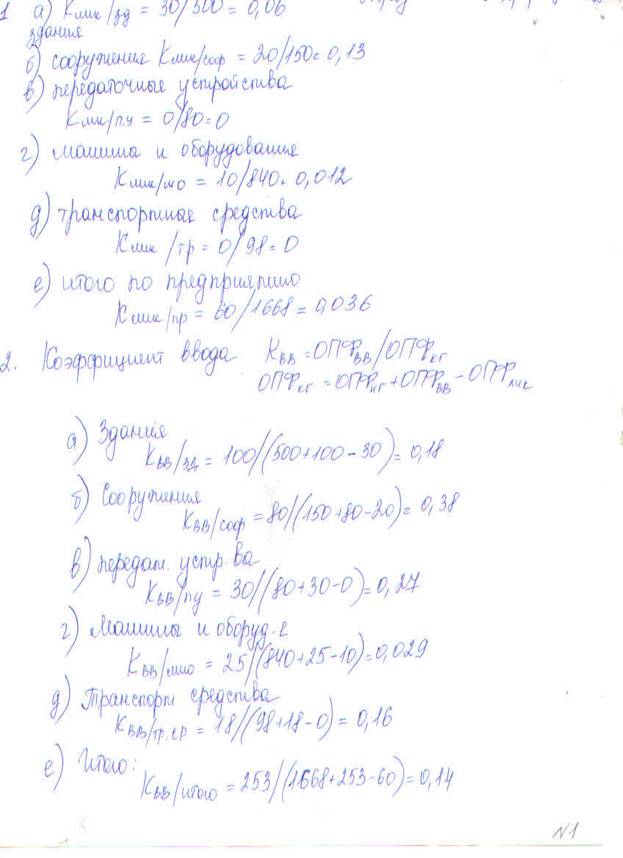 1 а) Клик/зд = 30/500 = 0,06
здания
б) сооружения Клик/соор = 20/150 = 0,13
в) передаточные устройства
Клик/п.у = 0/80 = 0
г) машины и оборудования
Клик/мо = 10/840 = 0,012
д) транспортные средства
Клик/тр = 0/98 = 0
е) итого по предприятию
Клик/пр = 60/1668 = 0,036
2. Коэффициент ввода Квв = ОПФвв/ОПФкг
ОПФкг = ОПФнг + ОПФвв - ОПФлик
а) Здания
Квв/зд = 100/(500+100-30) = 0,18
б) Сооружения
Квв/соор = 80/(150+80-20) = 0,38
в) передат. устр-ва
Квв/пу = 30/(80+30-0) = 0,27
г) Машины и оборуд-е
Квв/мио = 25/(840+25-10) = 0,029
д) Транспорт. средства
Квв/тр.ср = 18/(98+18-0) = 0,16
е) Итого:
Квв/итого = 253/(1668+253-60) = 0,14
N1